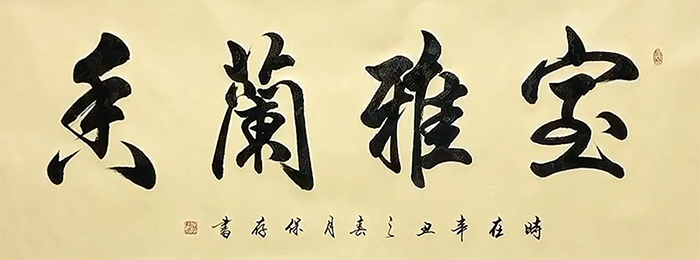 室雅蘭香
時在辛丑之春月保存書